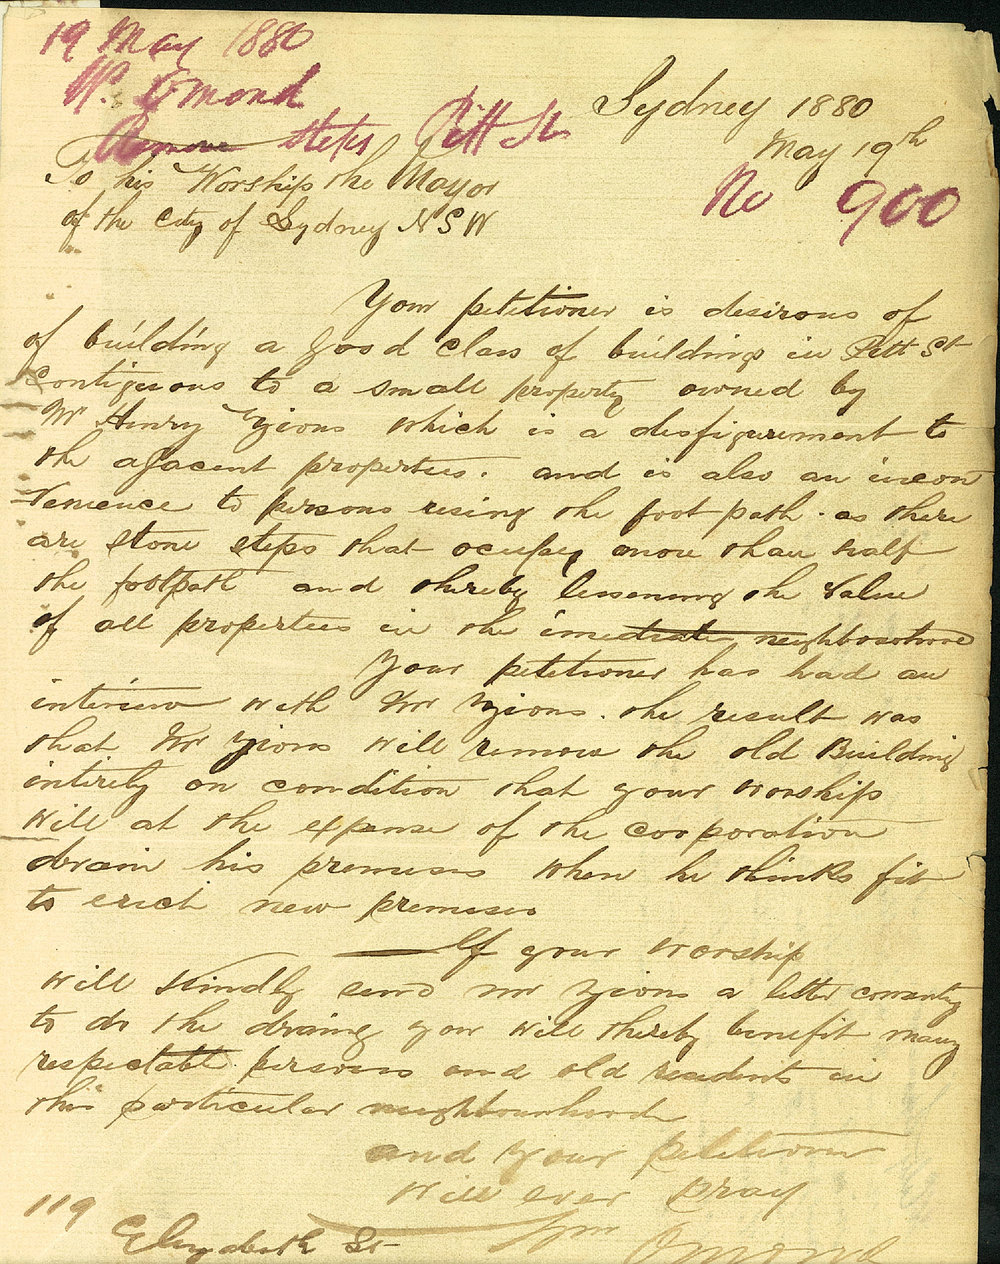 19 May 1880
W. Omond
Remove steps Pitt St
Sydney 1880
May 19th
No 900
To his Worship the Mayor
of the City of Sydney N S W
Your petitioner is desirous of
of building a good class of buildings in Pitt St
Contiguous to a small property owned by
Mr Henry Zions which is a disfigurement to
the ajacent properties. and is also an incon
venience to persons using the foot path. as there
are stone steps that ocupy more than half
the footpath and thereby lessening the value
of all properties in the imediate neighbourhood
Your petitioner has had an
interview with Mr Zions. the result was
that Mr Zions will remove the old Building
entirely on condition that your worship
will at the expense of the corporation
drain his premises when he thinks fit
to erect new premises
If your worship
will kindly send Mr Zions a letter
to do the draing you will thereby benefit many
respectable persons and old residents in
this particular neighbourhood
and your petitioner
will ever pray
119
Elizabeth St
Wm Omond